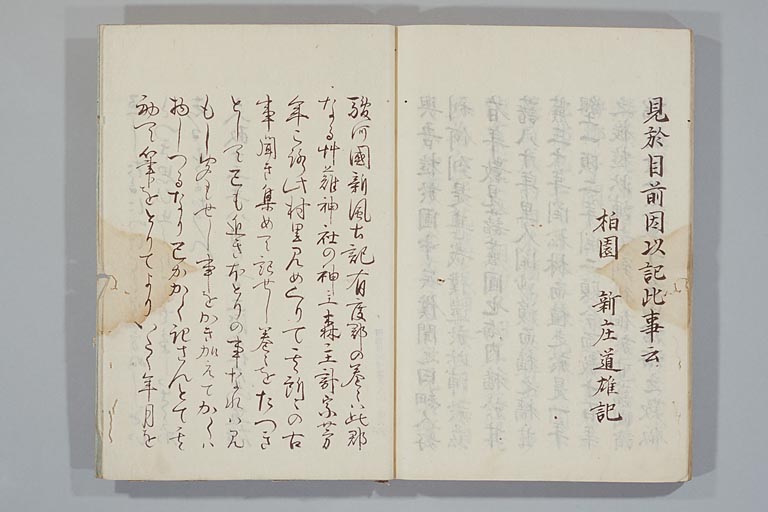 見於目前因以記此事云
柏園 新庄道雄記
駿河國新風土記有度郡の巻ハ此郡
なる艸薙神社の神主森主計宗芳
年ころ此村里見めくりて其所〻の古
事聞き集めて記せし巻〻をたつき
としてこも近きほとりの事なれハ見
もし聞もせし事をかき加えてかくハ
物しつるなりこかかく記さんとて
初て筆をとりてより 年月を